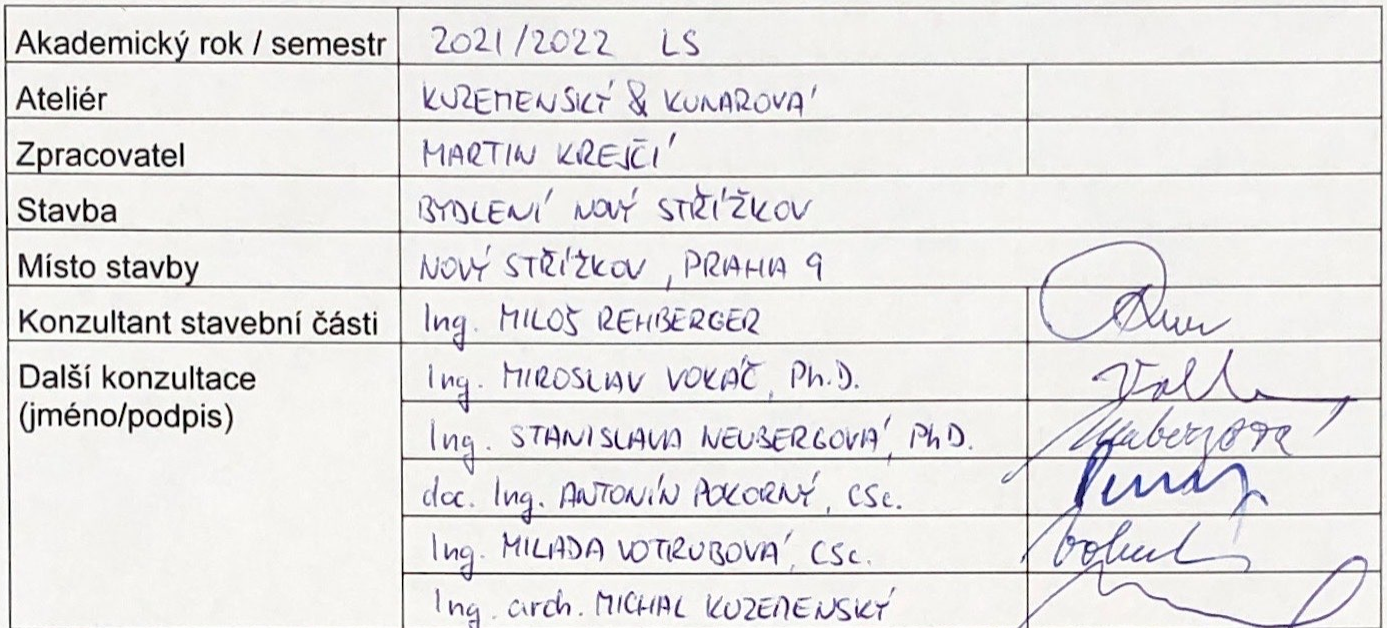 Akademický rok / semestr 2021/2022 LS
Ateliér KUZEMENSKÝ & KUNAROVÁ
Zpracovatel MARTIN KREJČÍ
Stavba BYDLENÍ NOVÝ STŘÍŽKOV
Místo stavby NOVÝ STŘÍŽKOV, PRAHA 9
Konzultant stavební části Ing. MILOŠ REHBERGER
Další konzultace Ing. MIROSLAV VOKÁČ, Ph.D.
(jméno/podpis)
Ing. STANISLAVA NEUBERGOVÁ, PhD.
doc. Ing. ANTONÍN POKORNÝ, CSc.
Ing. MILADA VOTRUBOVÁ, CSc.
Ing. arch. MICHAL KUZEMENSKÝ